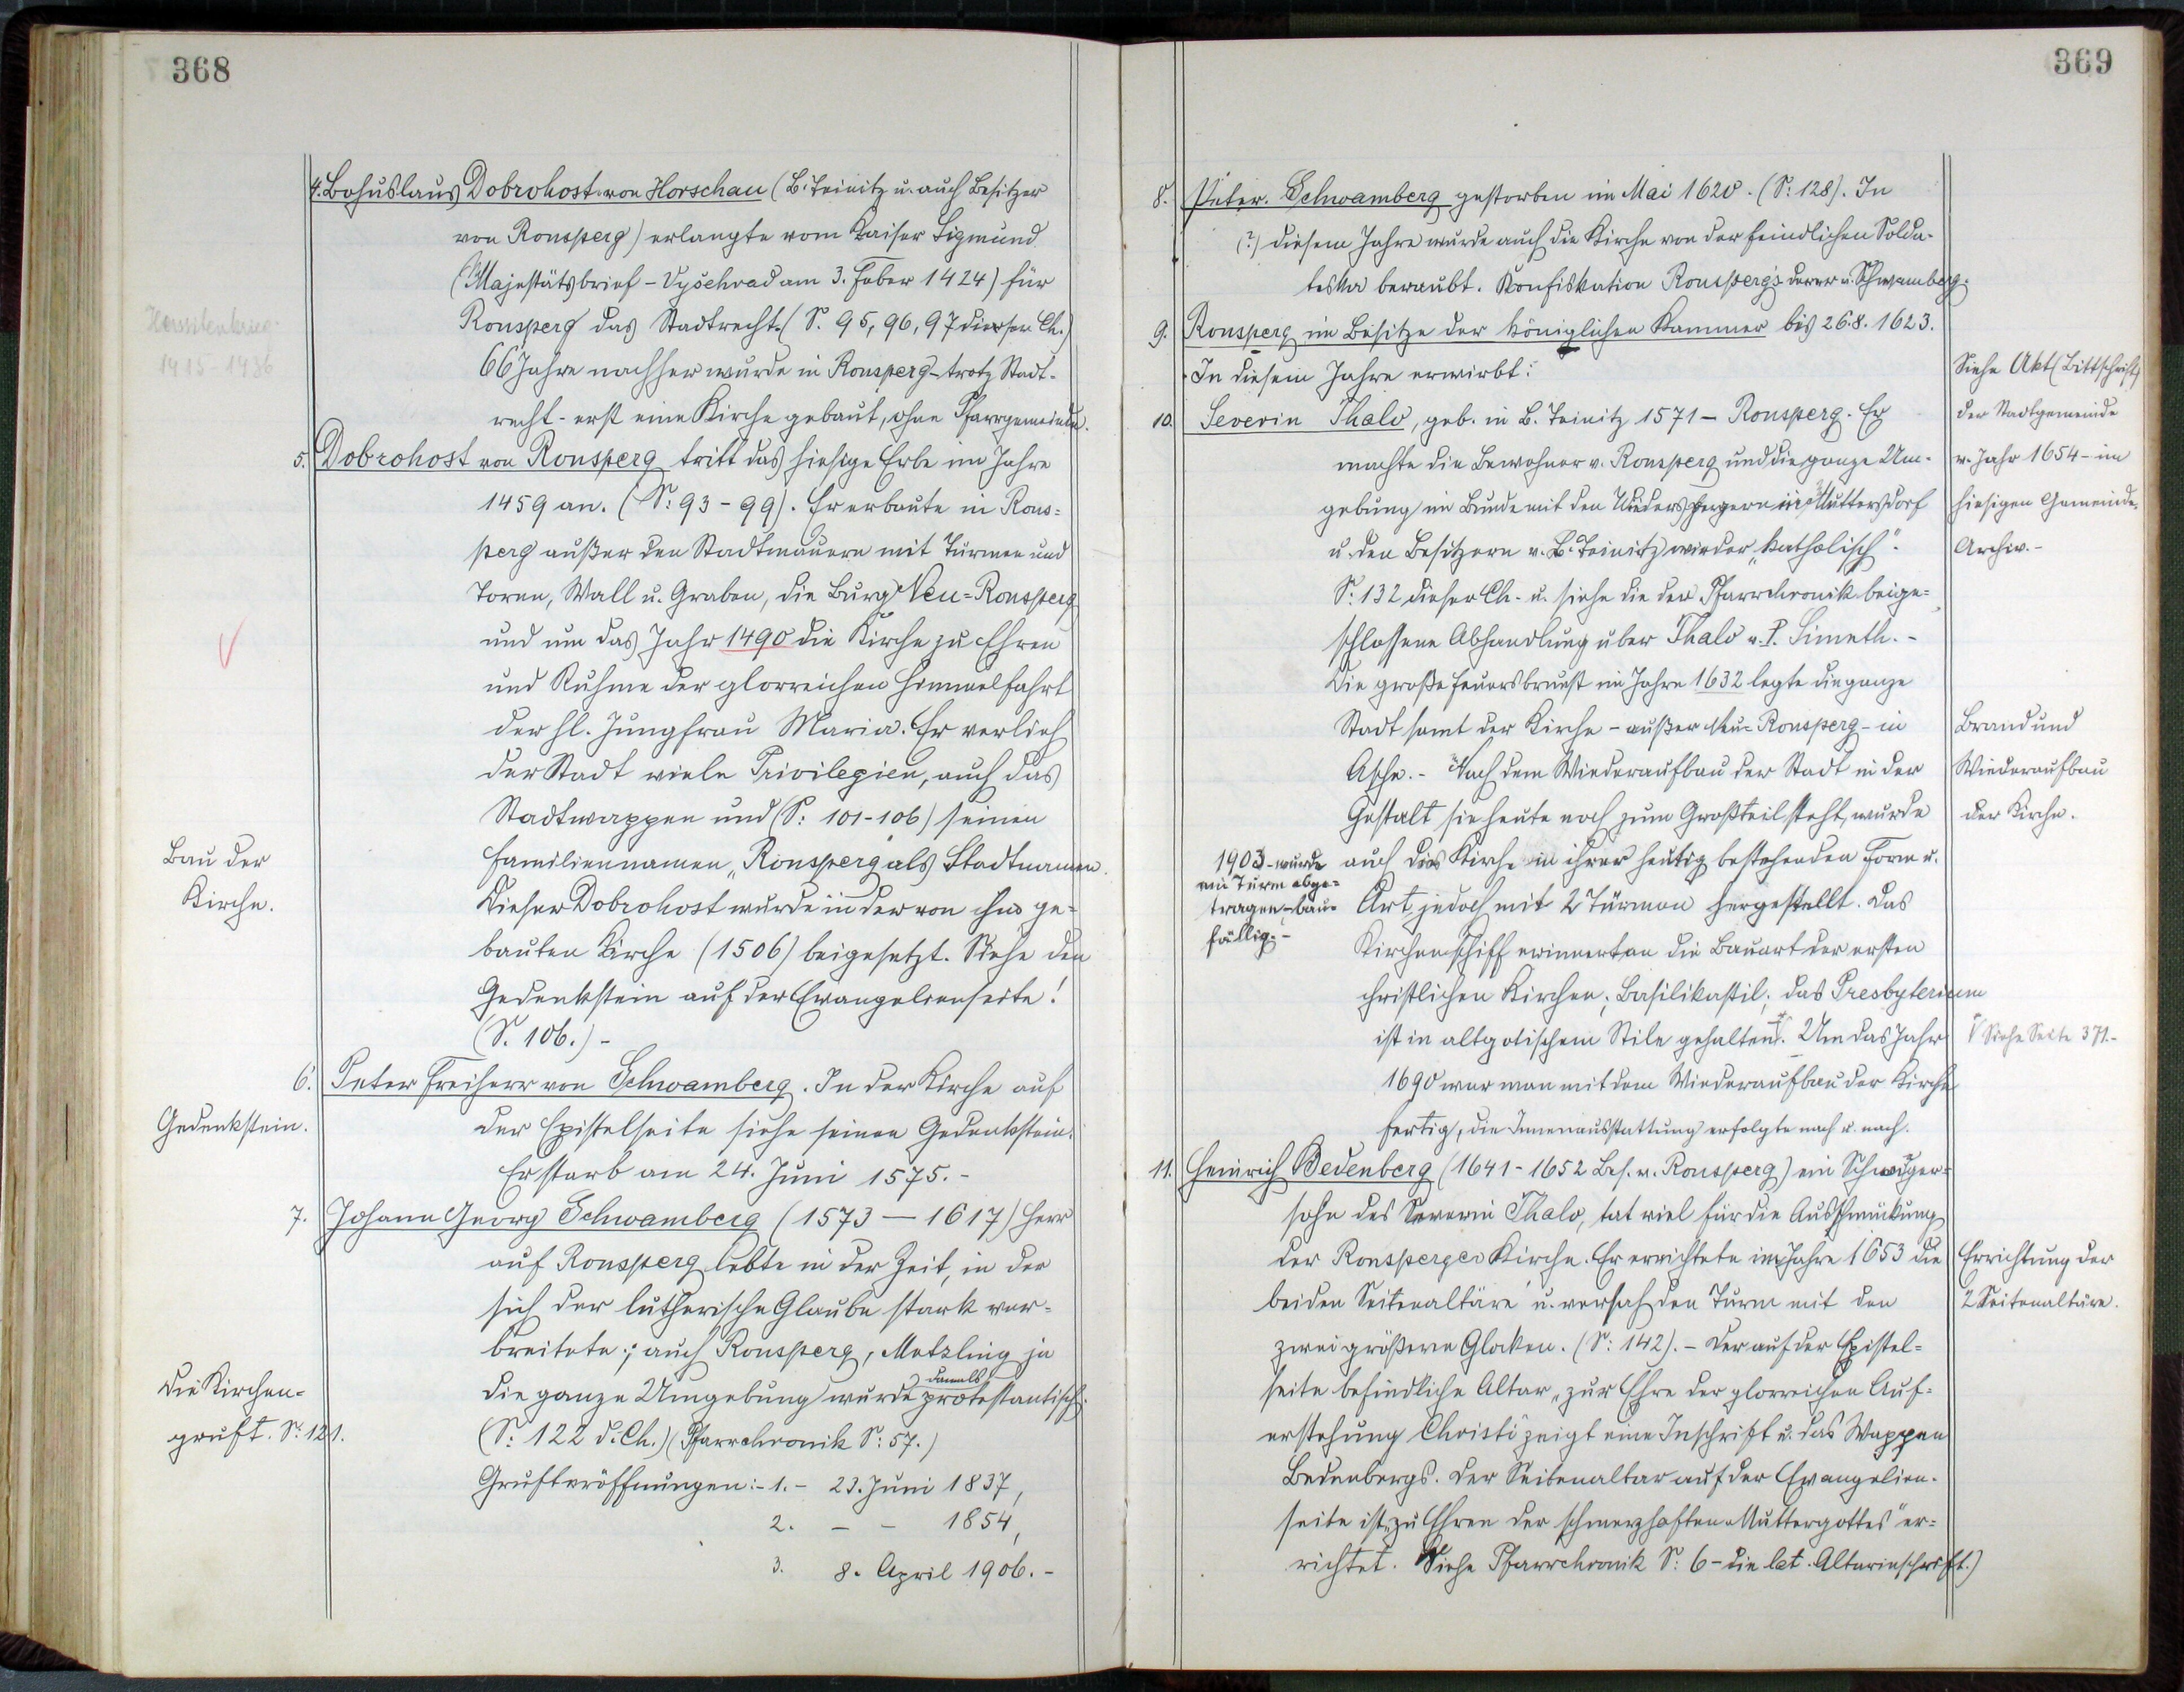 368
4. Bohuslaus Dobrohost von Horschau (B. Teinitz u. auch Besitzer
von Ronsperg) erlangte vom Kaiser Sigmund
(Majestätsbrief - Vyšehrad am 3. Feber 1424) für
Ronsperg das Stadtrecht. (S. 95, 96, 97 dieser Ch.)
Hussitenkrieg
1415-1436
66 Jahre nachher wurde in Ronsperg - trotz Stadt-
recht - erst eine Kirche gebaut, ohne Pfarrgemeinde.
5. Dobrohost von Ronsperg tritt das hiesige Erbe im Jahre
1459 an. (S: 93-99). Er erbaute in Rons=
perg außer den Stadtmauern mit Türmen und
Toren, Wall u. Graben, die Burg Neu=Ronsperg
und um das Jahr 1490 die Kirche zu Ehren
und Ruhme der glorreichen Himmelfahrt
der hl. Jungfrau Maria. Er verlieh
der Stadt viele Privilegien, auch das
Stadtwappen und (S: 101-106) seinen
Bau der
Kirche.
Familiennamen „Ronsperg als Stadtnamen.
Dieser Dobrohost wurde in der von ihm ge=
bauten Kirche (1506) beigesetzt. Siehe den
Gedenkstein auf der Evangelienseite!
(S. 106.) -
6. Peter Freiherr von Schwamberg. In der Kirche auf
Gedenkstein.
der Epistelseite siehe seinen Gedenkstein.
Er starb am 24. Juni 1575. -
7. Johann Georg Schwamberg (1573 — 1617) Herr
auf Ronsperg lebte in der Zeit, in der
sich der lutherische Glaube stark ver=
breitete; auch Ronsperg, Metzling ja
damals
die ganze Umgebung wurde protestantisch.
Die Kirchen=
gruft. S: 121.
(S: 122 d. Ch.) (Pfarrchronik S: 57.)
Grufteröffnungen: - 1. - 23. Juni 1837,
2. - - 1854,
3. 8. April 1906. -
369
8. Peter. Schwamberg gestorben im Mai 1620. (S: 128). In
(?) diesem Jahre wurde auch die Kirche von der feindlichen Solda-
teska beraubt. Konfiskation Ronsperg's derer v. Schwamberg.
9. Ronsperg im Besitze der königlichen Kammer bis 26.8. 1623.
In diesem Jahre erwirbt:
10. Severin Thalo, geb. in B. Teinitz 1571 - Ronsperg. Er
machte die Bewohner v. Ronsperg und die ganze Um-
gebung im Bunde mit den in Muttersdorf
u. den Besitzern v. B. Teinitz wieder „katholisch".
Siehe Akt (Bittschrift)
der Stadtgemeinde
v. Jahr 1654 - im
hiesigen Gemeinde-
Archiv. -
S: 132 dieser Ch. u. siehe die der Pfarrchronik beige=
schlossene Abhandlung über Thalo v. P. Simeth. -
Die große Feuersbrunst im Jahre 1632 legte die ganze
Stadt samt der Kirche - außer Neu=Ronsperg - in
Asche. - Nach dem Wiederaufbau der Stadt in der
Gestalt sie heute noch zum Großteil steht, wurde
Brand und
Wiederaufbau
der Kirche.
auch die Kirche in ihrer heutig bestehenden Form u.
Art, jedoch mit 2 Türmen hergestellt. Das
1903 - wurde
ein Turm abge=
tragen - bau=
fällig. -
Kirchenschiff erinnert an die Bauart der ersten
christlichen Kirchen; Basilikastil; das Presbyterium
ist in altgotischem Stile gehalten. Um das Jahr
Siehe Seite 371. -
1690 war man mit dem Wiederaufbau der Kirche
fertig, die Innenausstattung erfolgte nach u. nach.
11. Heinrich Bedenberg (1641-1652 Bes. v. Ronsperg) ein Schwieger=
sohn des Severin Thalo, tat viel für die Ausschmückung
der Ronsperger Kirche. Er errichtete im Jahre 1653 die
beiden Seitenaltäre u. versah den Turm mit den
Errichtung der
2 Seitenaltäre.
zwei größeren Glocken. (S: 142). - Der auf der Epistel=
seite befindliche Altar „zur Ehre der glorreichen Auf=
erstehung Christi zeigt eine Inschrift u. das Wappen
Bedenbergs. Der Seitenaltar auf der Evangelien-
seite ist „zu Ehren der schmerzhaften Muttergottes" er=
richtet. Siehe Pfarrchronik S: 6 - die lat. Altarinschrift.)